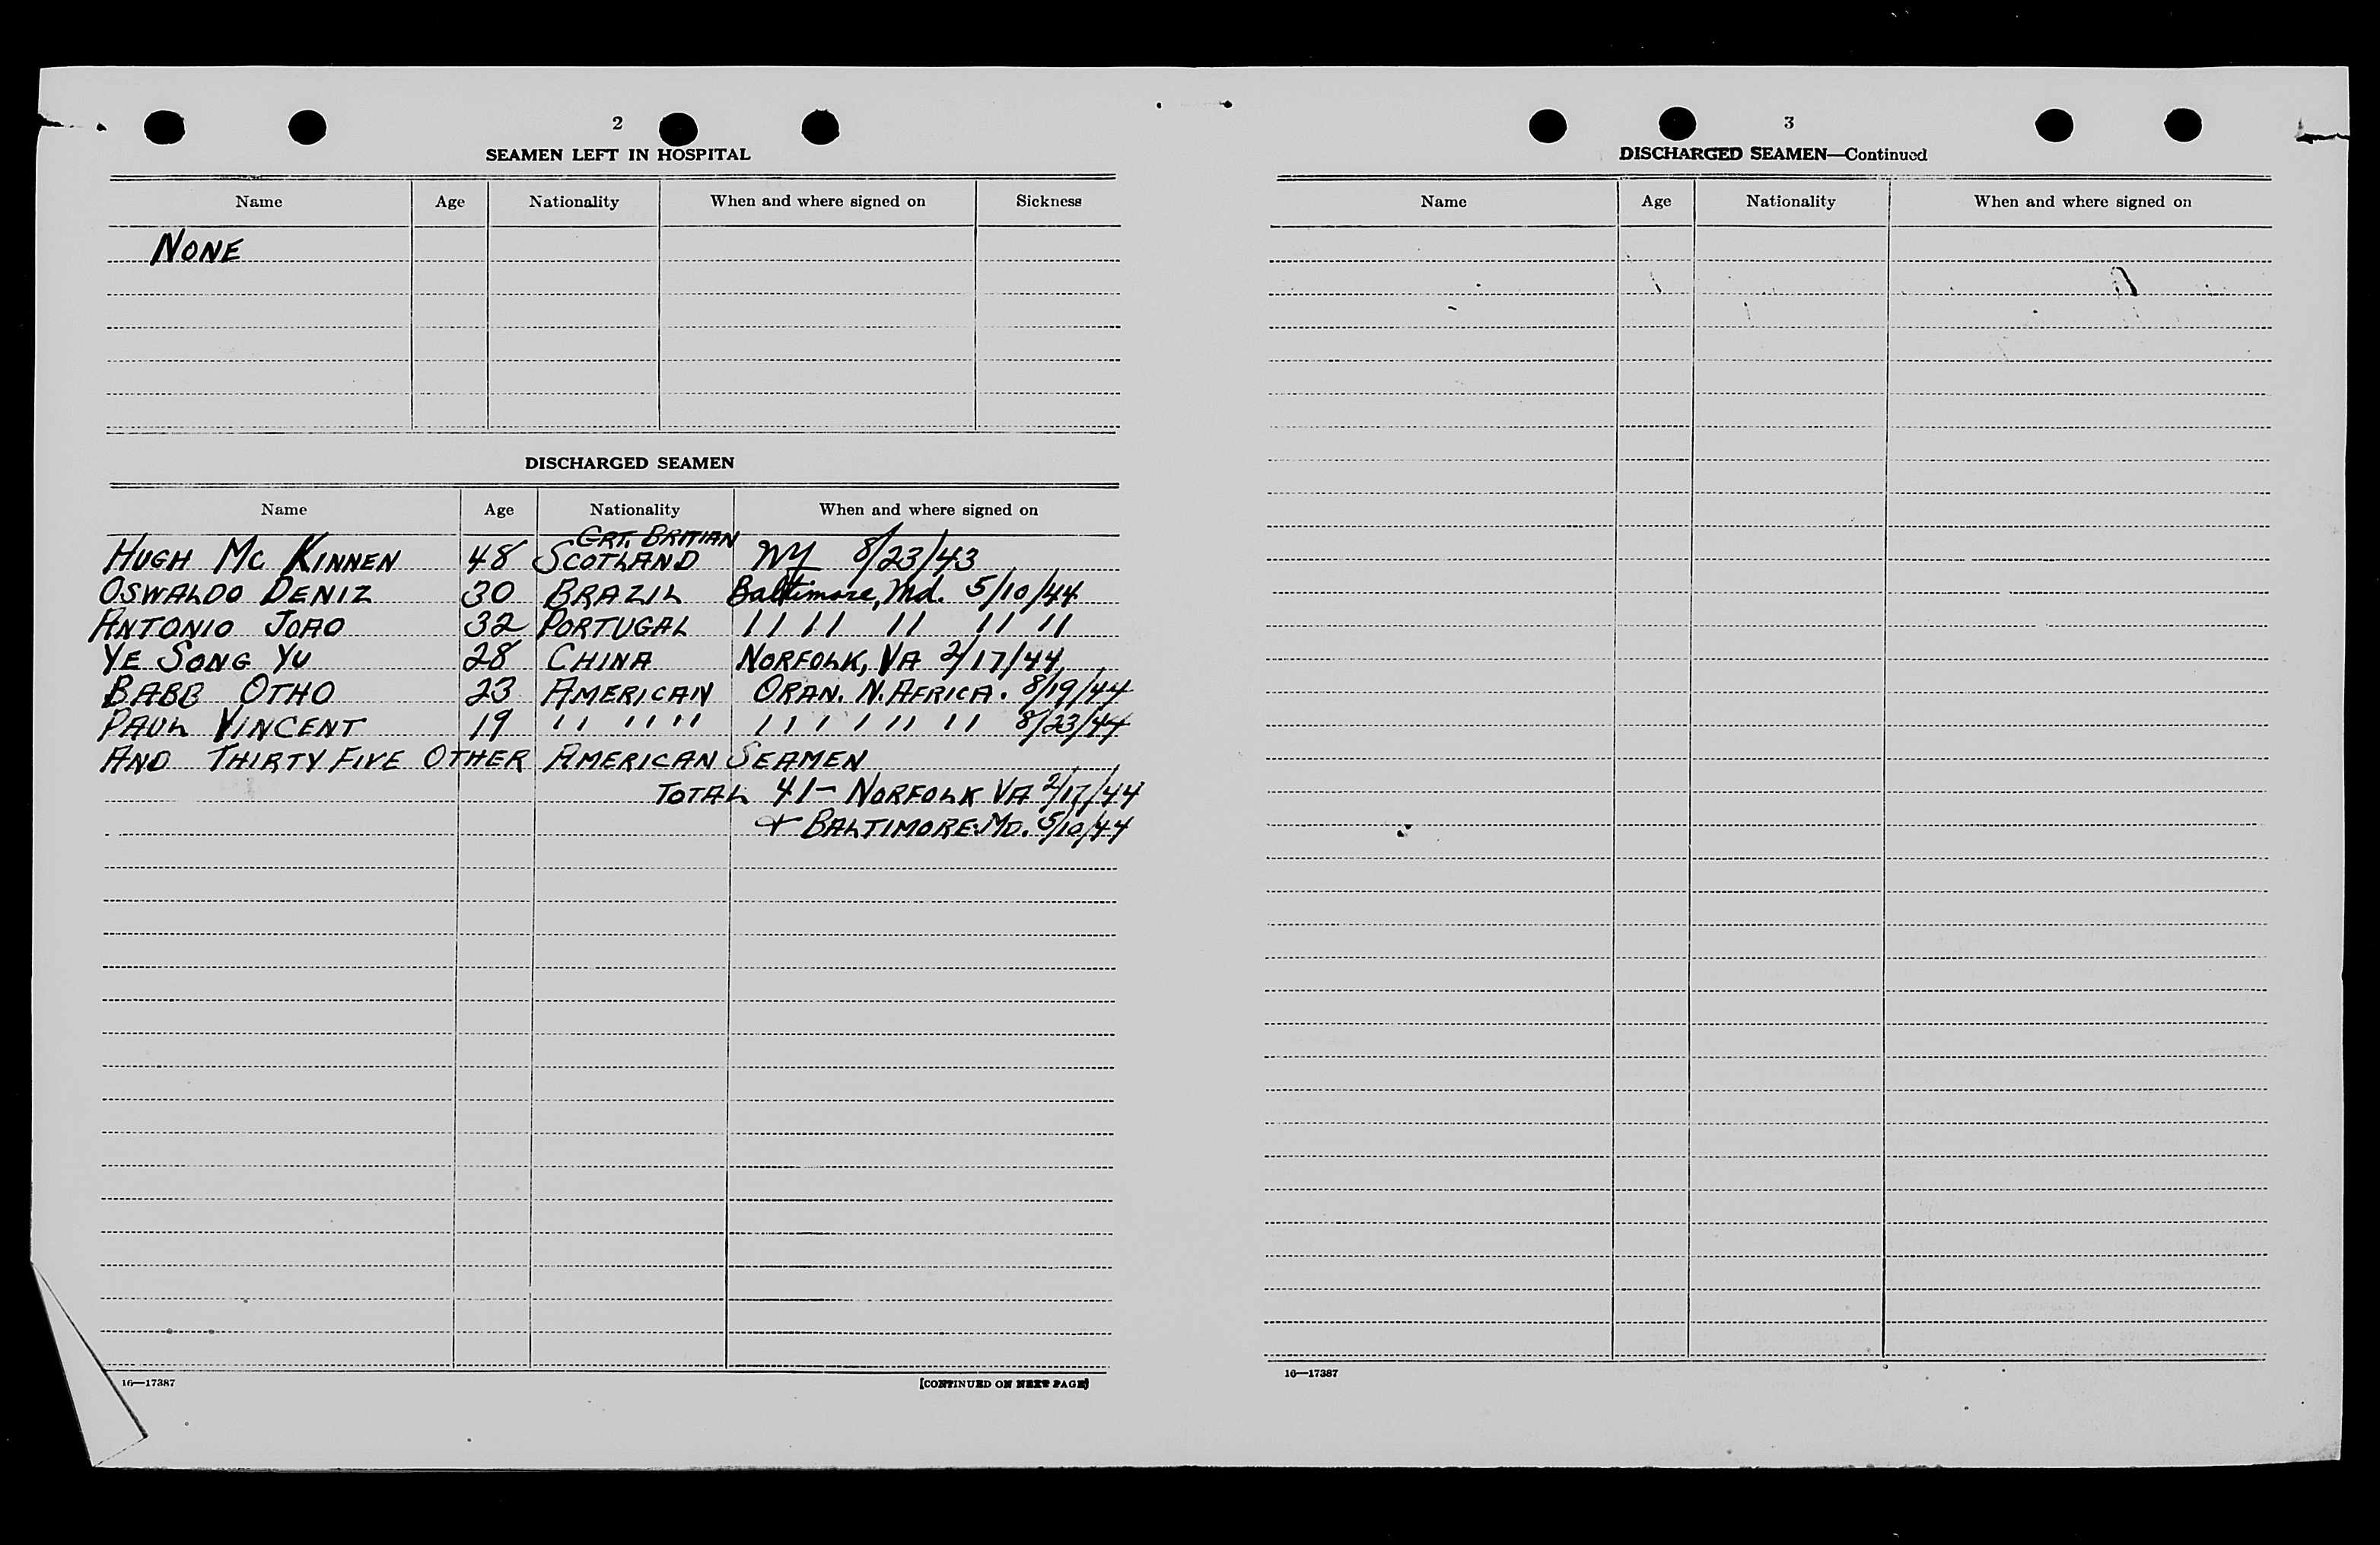 2
SEAMEN LEFT IN HOSPITAL
Name Age Nationality When and where signed on Sickness
NONE
DISCHARGED SEAMEN
Name Age Nationality When and where signed on
GRT. BRITIAN
HUGH MC KINNEN 48 SCOTLAND NY 8/23/43
OSWALDO DENIZ 30 BRAZIL Baltimore, Md. 5/10/44
ANTONIO JOAO 32 PORTUGAL 11 11 11 11 11
YE SONG YU 28 CHINA NORFOLK, VA 2/17/44
BABB OTHO 23 AMERICAN ORAN. N. AFRICA. 8/19/44
PAUL VINCENT 19 11 11 11 11 1 1 11 11 8/23/44
AND THIRTY FIVE OTHER AMERICAN SEAMEN
TOTAL 41- NORFOLK VA 2/17/44
+ BALTIMORE. MD. 5/10/44
16—17387 [CONTINUED ON NEXT PAGE]
3
DISCHARGED SEAMEN—Continued
Name Age Nationality When and where signed on
16—17387